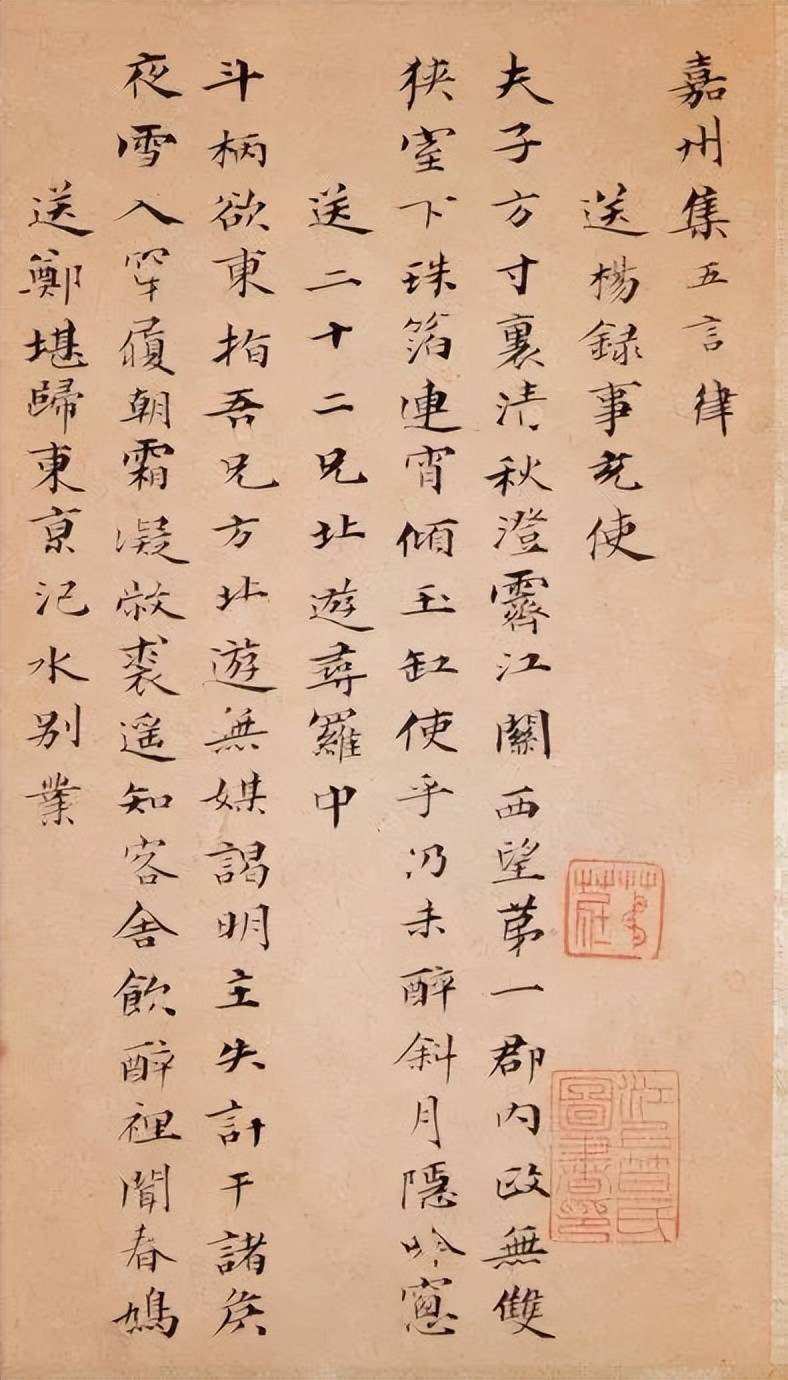 嘉州集五言律
送楊録事充使
夫子方寸裏清秋澄霽江關西望苐一郡内政無雙
狹室下珠箔連宵傾玉缸使乎仍未醉斜月隱吟窻
送二十二兄北遊尋羅中
斗柄欲東指吾兄方北遊無媒謁明主失計干諸侯
夜雪入穿履朝霜凝敝裘遥知客舍飲醉裡聞春鳩
送鄭堪歸東京汜水别業
江上笪氏圖書印